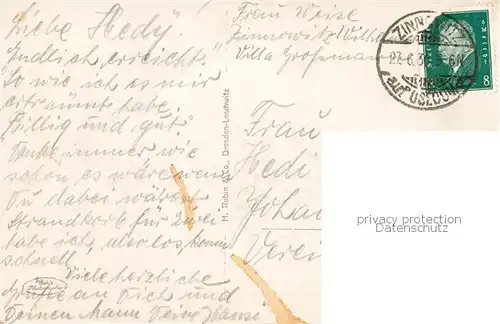 Liebe Hedy!
Endlich erreicht.
So wie ich es mir
erträumt habe.
Billig und gut.
Denke immer wie
schön es wäre wenn
Du dabei wärst
Strandkorb für zwei
habe ich, aber los, komm
schnell.
Viele herzliche
Grüße an Dich und
Deinen Mann Deine Hansi
H. Rubin & Co., Dresden-Loschwitz
Frau Weise
Zinnowitz Villa
Villa Großman
ZINN
27.6.3
auf USEDOM
8
Frau
Hedi
Joha
Verei
privacy protection
Datenschutz